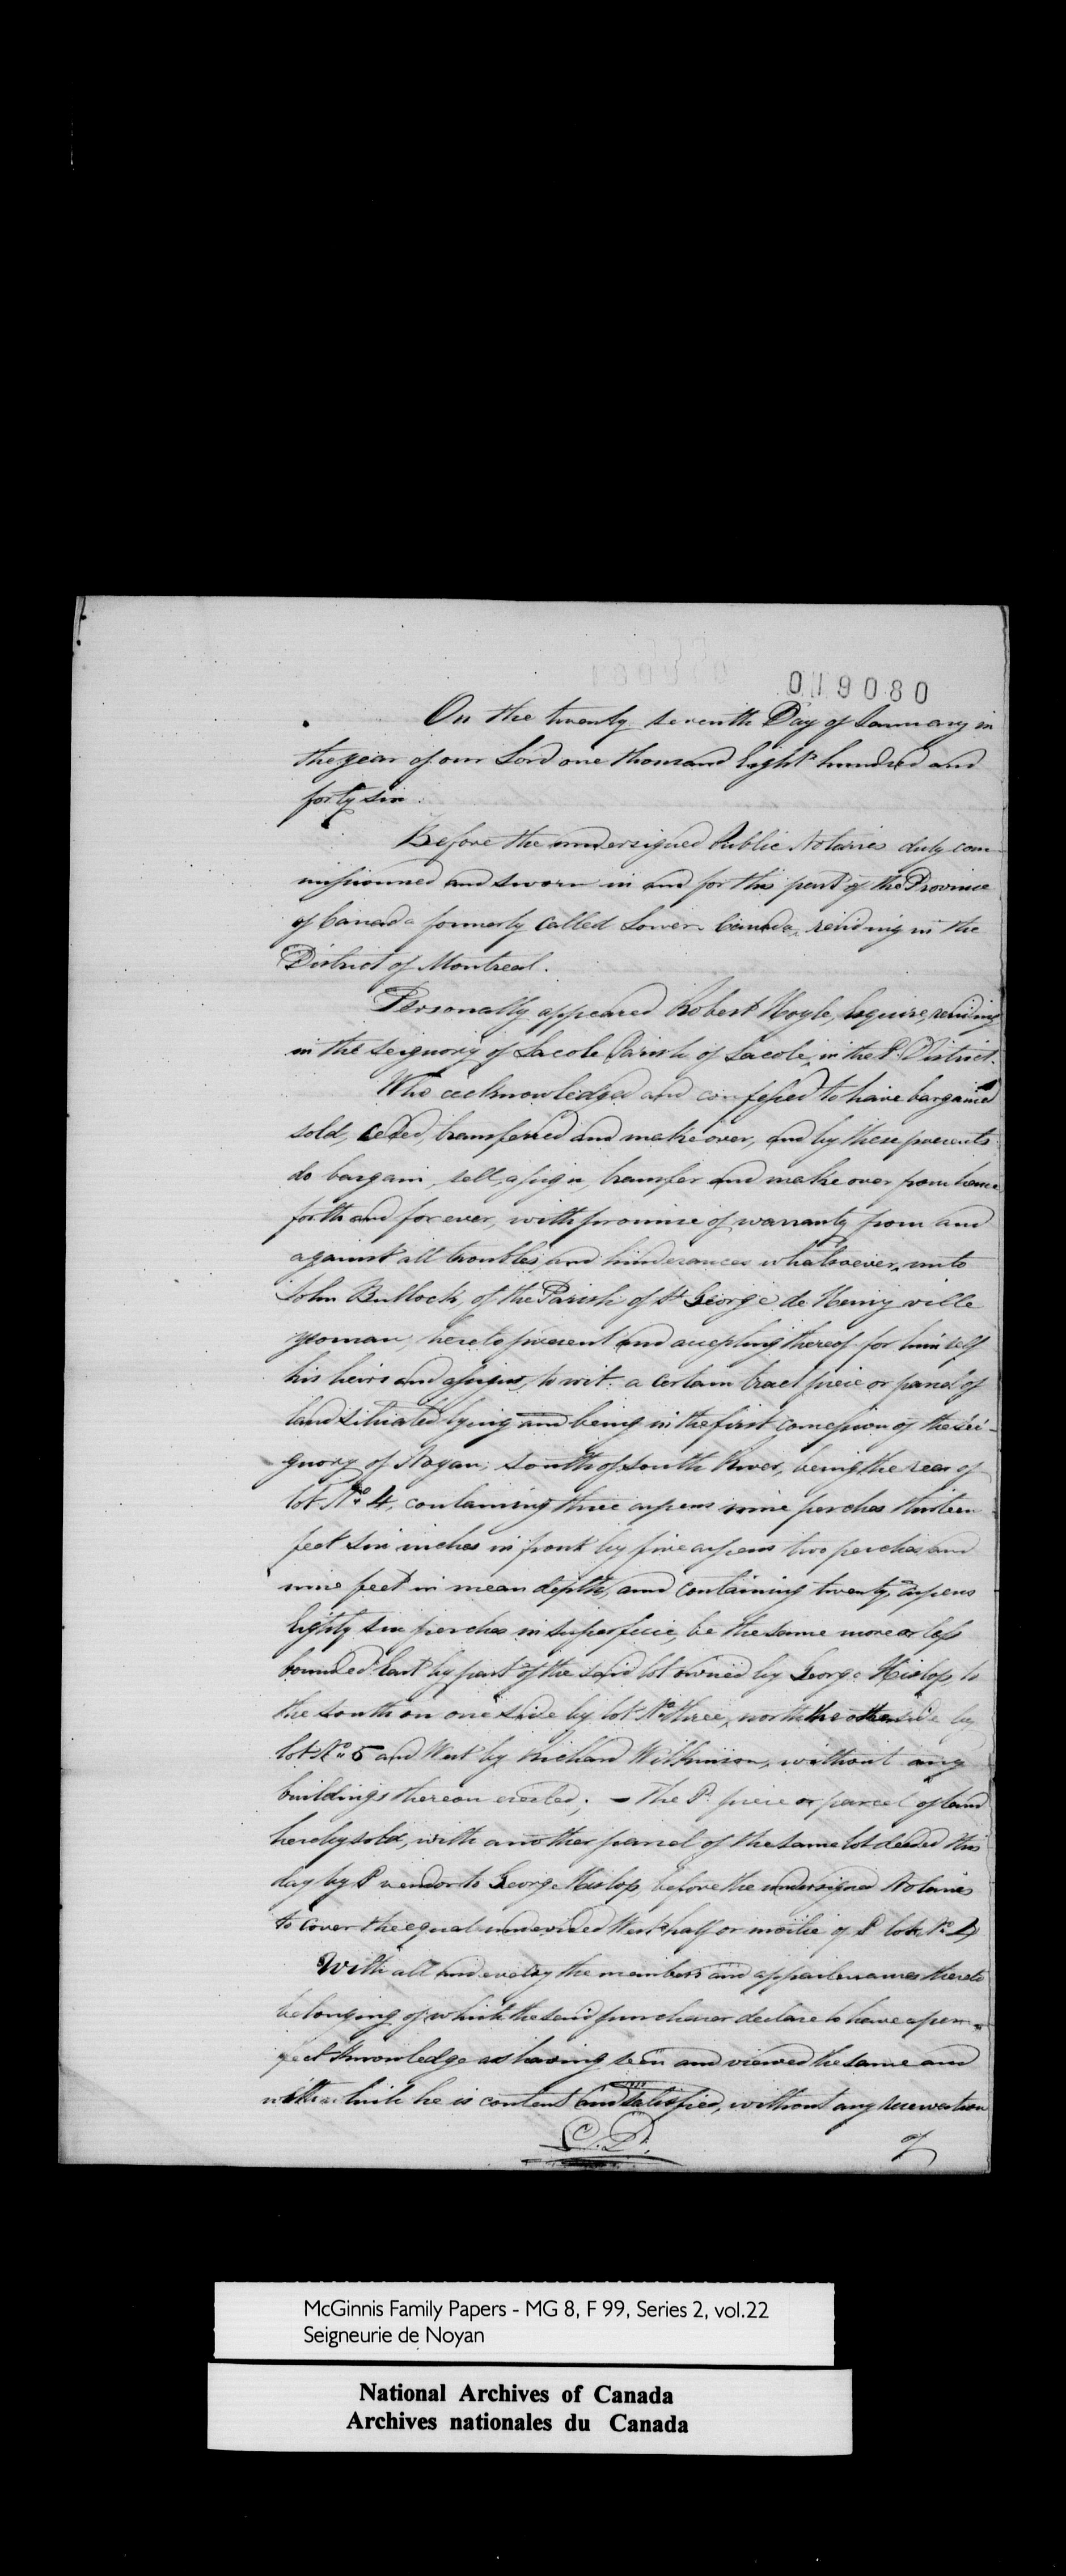 019080
On the twenty seventh Day of January in
the year of our Lord one thousand Eight hundred and
forty six.
Before the undersigned Public Notaries duly com-
missionned and sworn in and for this part of the Province
of Canada formerly Called Lower Canada, residing in the
District of Montreal.
Personally appeared Robert Hoyle, Esquire, residing
in the Seignory of Lacole Parish of Lacole, in the Sd. District.
Who acknowledged and confessed to have bargained
sold, ceded, transferred and make over, and by these presents
do bargain, sell, assign, transfer and make over from hence
forth and for ever, with promise of warranty from and
against all troubles and hinderances whatsoever, unto
John Bullock, of the Parish of St George de Henry ville
yeoman, hereto present and accepting thereof for him self
his heirs and assigns, to wit: a certain tract piece or parcel of
land situated lying and being in the first concession of the sei-
gnory of Noyan, south of south River, being the rear of
lot No. 4, containing three arpens nine perches thirteen
feet six inches in front by five arpens two perches and
nine feet in mean depth, and containing twenty arpens
Eighty six perches in superficie, be the same more or less
bounded East by part of the said lot owned by George Hislop, to
the south on one side by lot No. three, north the other side by
lot No. 5 and West by Richard Wilkinson, without any
buildings thereon erected; - The Sd. piece or parcel of land
hereby sold, with another parcel of the same lot deeded this
day by Sd vendor to George Hislop, before the undersigned Notaries
to cover the equal undevided West half or moitie of Sd lot No. 4
With all and every the members and appartenances thereto
belonging of which the said purchaser declare to have a per-
fect knowledge as having seen and viewed the same and
with which he is content and satisfied, without any reservation
of
McGinnis Family Papers - MG 8, F 99, Series 2, vol.22
Seigneurie de Noyan
National Archives of Canada
Archives nationales du Canada